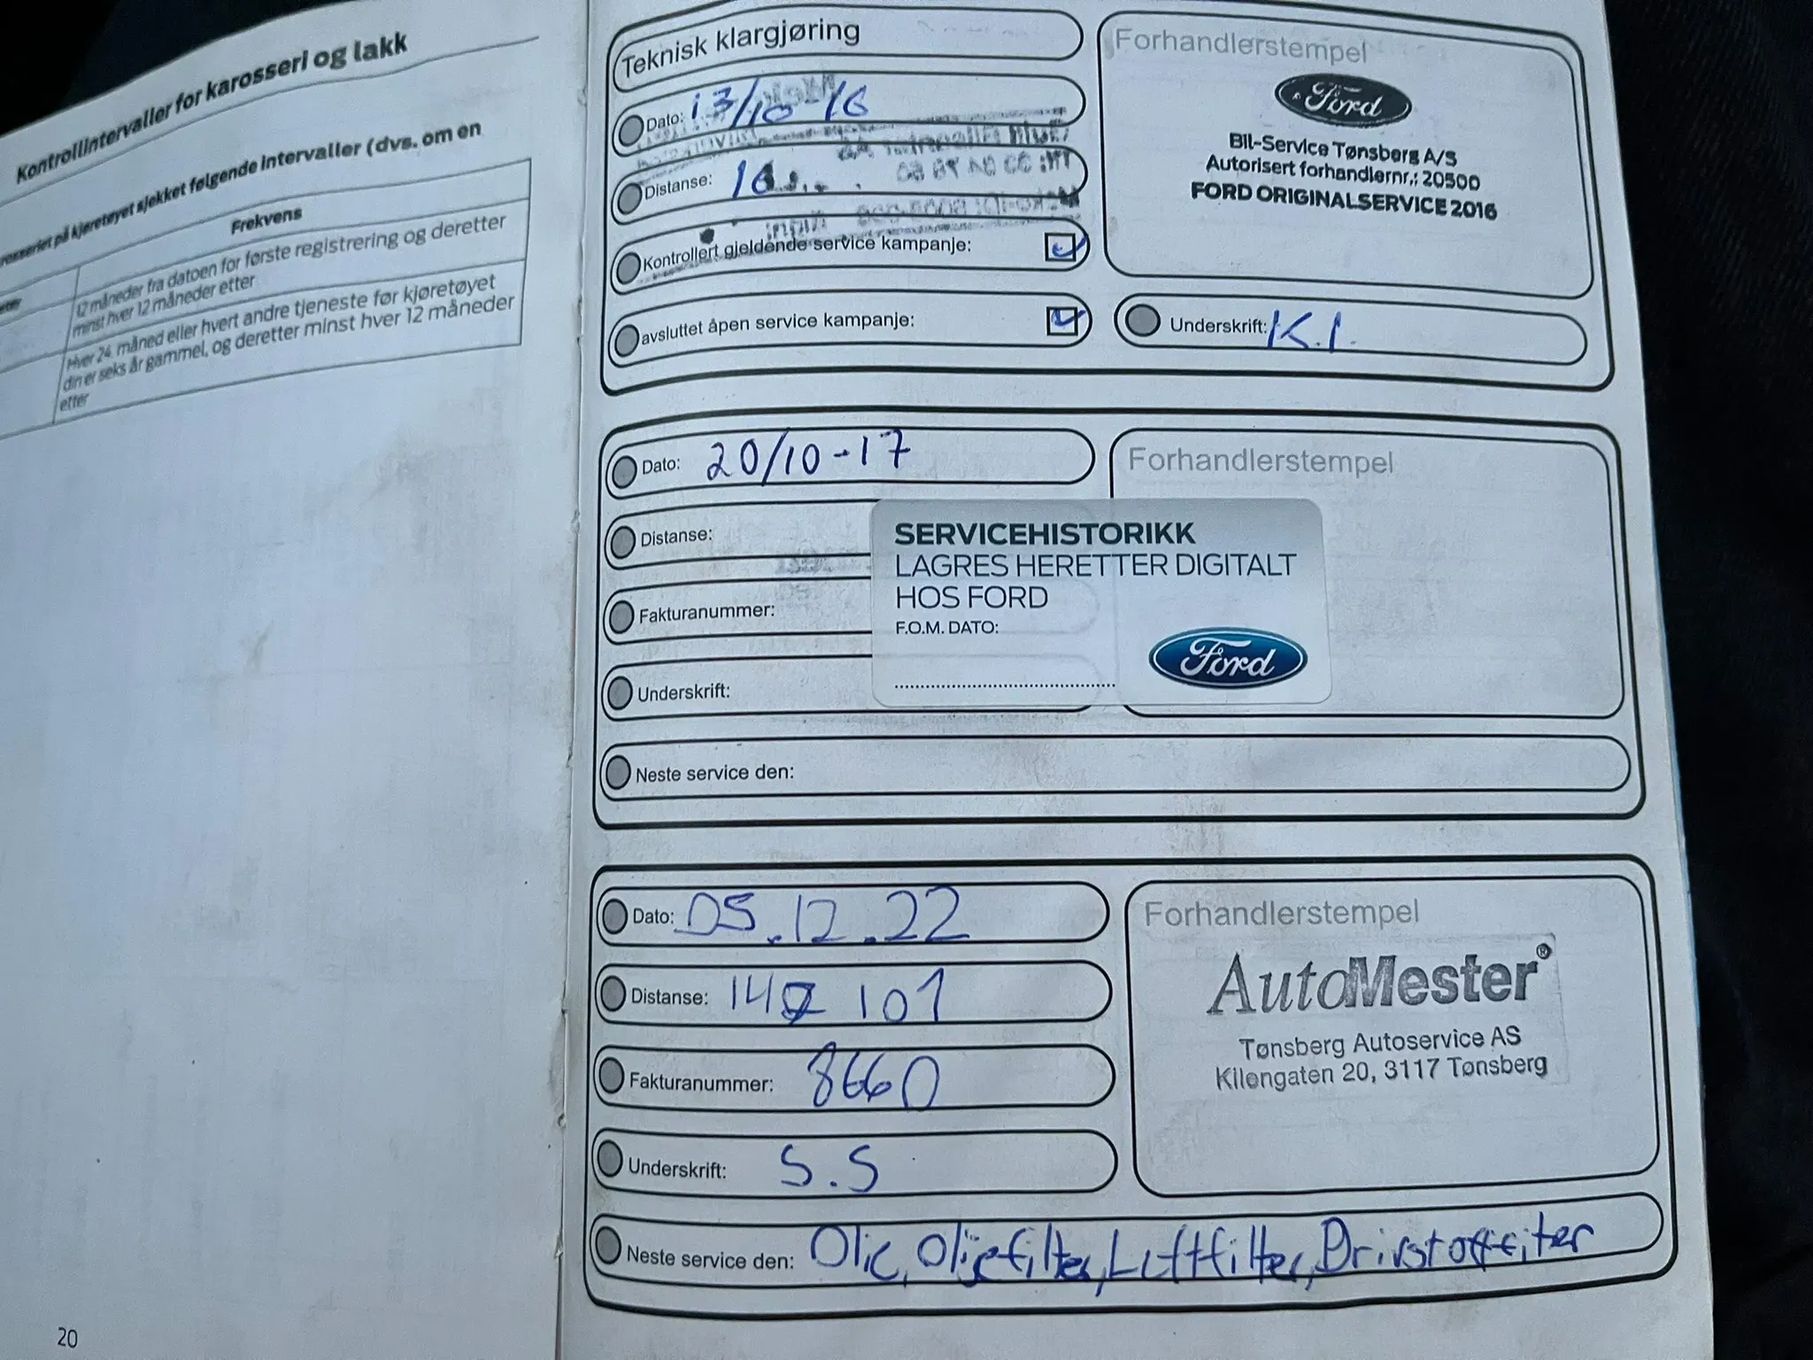 Kontrollintervaller for karosseri og lakk
følgende intervaller (dvs. om en
Frekvens
12 måneder fra datoen for første registrering og deretter
minst hver 12 måneder etter
Hver 24. måned eller hvert andre tjeneste før kjøretøyet
din er seks år gammel, og deretter minst hver 12 måneder
etter
20
Teknisk klargjøring
Dato: 13/10 16
Distanse:
Kontrollert gjeldende service kampanje:
avsluttet åpen service kampanje:
Forhandlerstempel
Ford
Bil-Service Tønsberg A/S
Autorisert forhandlernr.: 20500
FORD ORIGINALSERVICE 2016
Underskrift: K.I.
Dato: 20/10-17
Distanse:
Fakturanummer:
Underskrift:
Neste service den:
Forhandlerstempel
SERVICEHISTORIKK
LAGRES HERETTER DIGITALT
HOS FORD
F.O.M. DATO:
Ford
Dato: 05.12.22
Distanse: 142 101
Fakturanummer: 8660
Underskrift: S.S
Neste service den: Olie, Oljefilter, Luftfilter, Drivstoffiter
Forhandlerstempel
AutoMester®
Tønsberg Autoservice AS
Kilengaten 20, 3117 Tønsberg